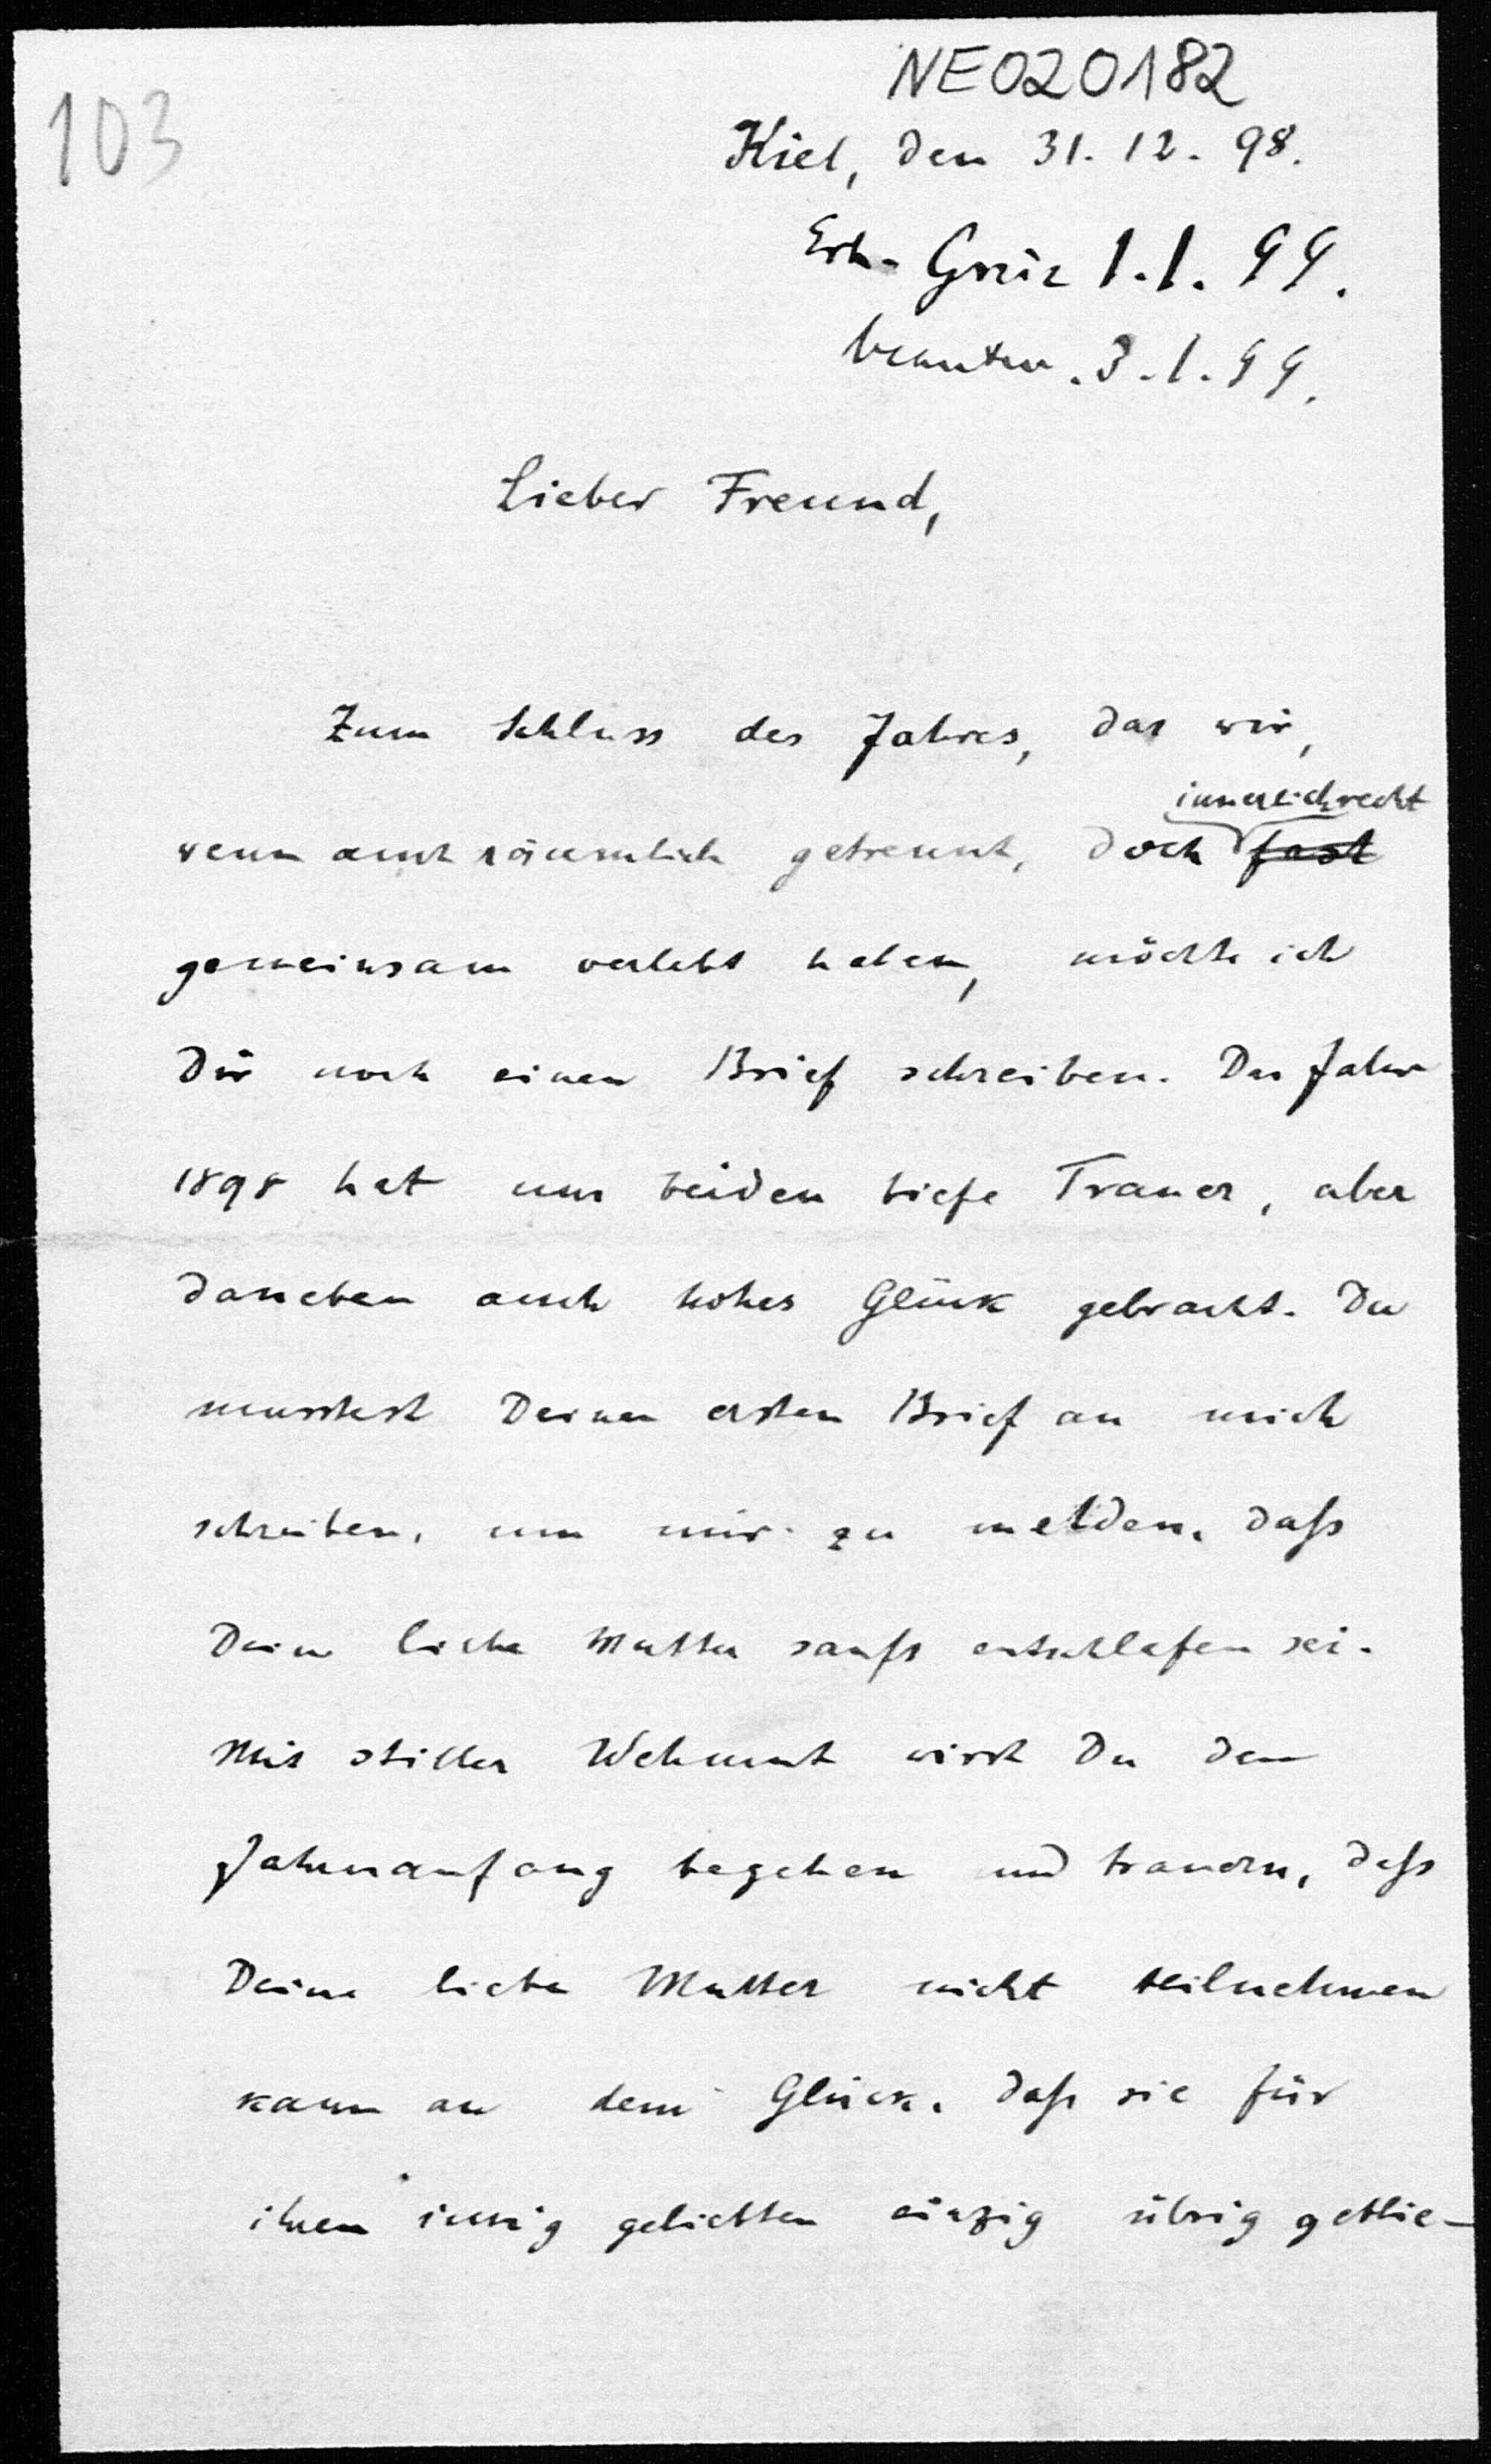 NE020182
103
Kiel, den 31. 12. 98.
Erh. Greiz 1. 1. 99.
beantw. 3. 1. 99.
Lieber Freund,
Zum Schluss des Jahres, das wir,
innerlich recht
wenn auch räumlich getrennt, doch fast
gemeinsam verlebt haben, möchte ich
Dir noch einen Brief schreiben. Das Jahr
1898 hat uns beiden tiefe Trauer, aber
daneben auch hohes Glück gebracht. Du
musstest Deinen ersten Brief an mich
schreiben, um mir zu melden, daſs
Deine liebe Mutter sanft entschlafen sei.
Mit stiller Wehmut wirst Du den
Jahresanfang begehen und trauern, daſs
Deine liebe Mutter nicht teilnehmen
kann an dem Glück, daſs sie für
ihren innig geliebten einzig übrig geblie-